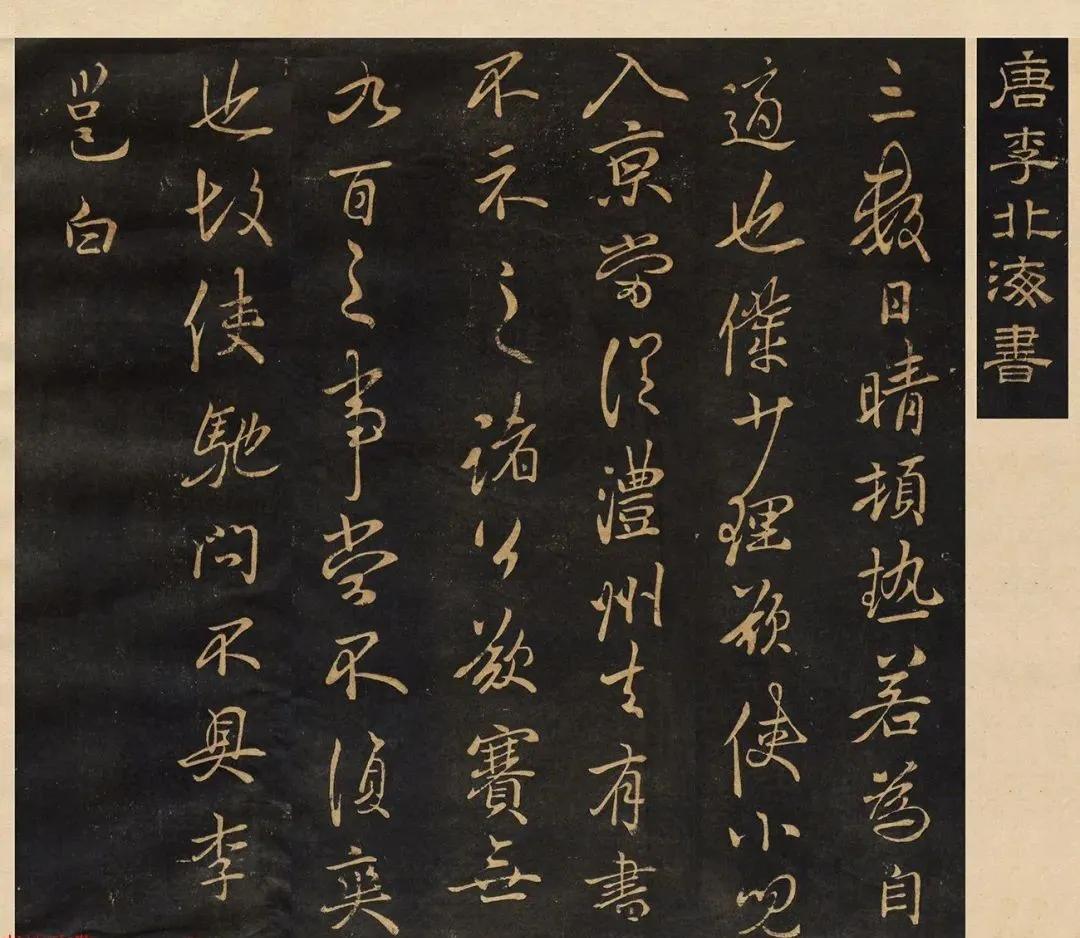 唐李北海書
三數日晴頓熱若為自
適也僕少理疑使小兒
入京當從澧州去有書
不示之諸公欲賽無
九百之事當不須奭
也故使馳問不具李
邕白